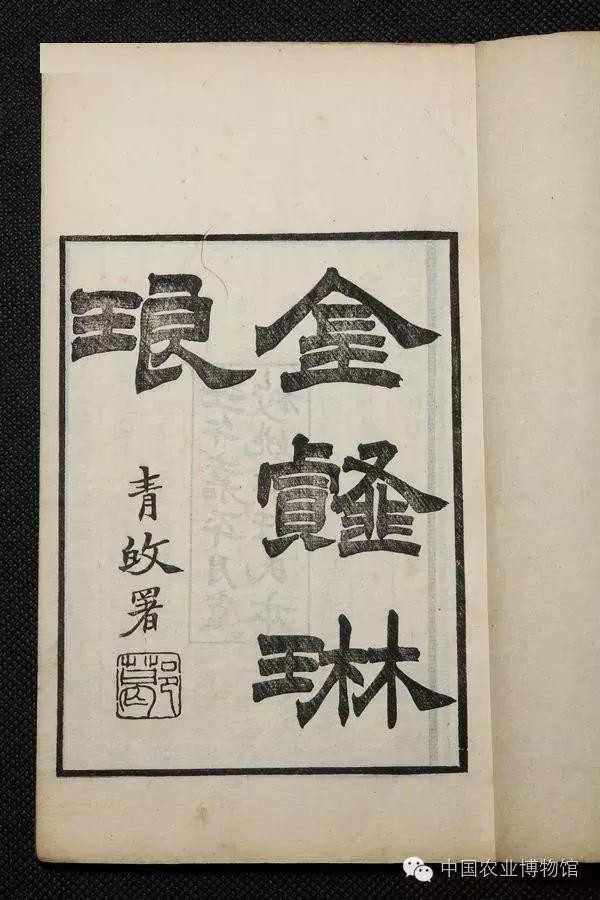 金䪥琳
琅
青敀署
中国农业博物馆